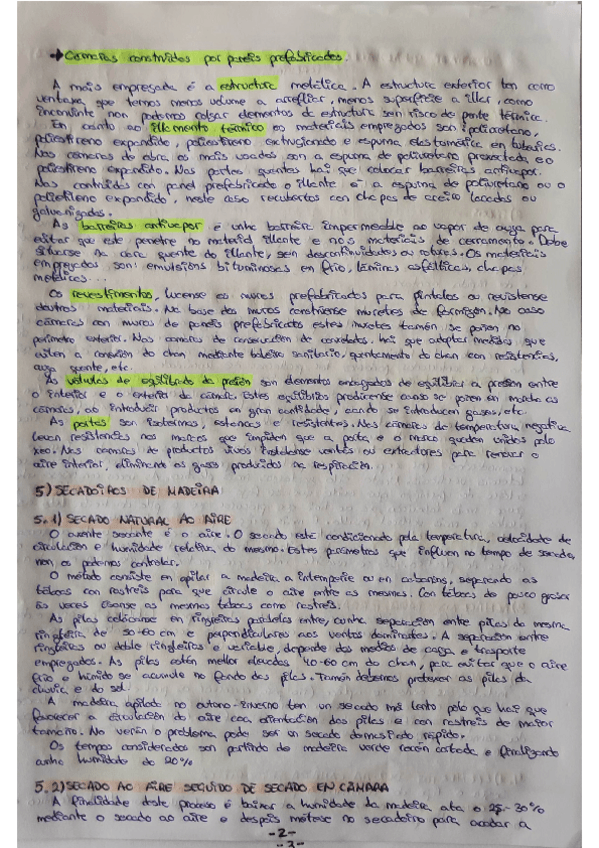 → Cámaras construidas por paneis prefabricados
A mais empregada é a estructura metálica. A estructura exterior ten como
ventaxa, que temos menos volume a arrefriar, menos superficie a illar, como
inconvinte non podemos colgar elementos da estructura sen risco de ponte térmica.
En canto ao illamento térmico os materiais empregados son: poliuretano,
poliestireno expandido, poliestireno extrusionado e espuma elastomérica en tubarías.
Nas cámaras de obra os mais usados son a espuma de poliuretano proxectada e o
poliestireno expandido. Nas partes quentes hai que colocar barreiras antivapor.
Nas contruidas con panel prefabricado o illante é a espuma de poliuretano ou o
poliestireno expandido, neste caso recubertos con chapas de aceiro lacadas ou
galvanizadas.
As barreiras antivapor é unha barreira impermeable ao vapor de auga para
evitar que este penetre no material illante e nos materiais de cerramento. Debe
situarse na cara quente do illante, sen descontinuidades ou roturas. Os materiais
empregados son: emulsións bituminosas en frío, láminas asfálticas, chapas
metálicas...
Os revestimentos, lucense os muros prefabricados para pintalos ou revistense
doutros materiais. Na base dos muros constriense muretes de formigón. No caso
cámaras con muros de paneis prefabricados estes muretes tamén se poñen no
perímetro exterior. Nas cámaras de conservación de conxelados, hai que adoptar medidas que
eviten a conxelación do chan mediante baleiro sanitario, quentamento do chan con resistencias,
auga quente, etc.
As válvulas de equilibrado de presión son elementos encargados de equilibrar a presión entre
o interior e o exterior da cámara. Estes equilibrios prodúcense cando se poñen en marcha as
cámaras, ao introducir productos en gran cantidade, cando se introducen gases, etc.
As portas son isotermas, estancas e resistentes. Nas cámaras de temperatura negativa
levan resistencias nos marcos que impiden que a porta e o marco queden unidos polo
xeo. Nas cámaras de productos vivos instálanse ventás ou extractores para renovar o
aire interior, eliminando os gases producidos na respiración.
5) SECADOIROS DE MADEIRA
5.1) SECADO NATURAL AO AIRE
O axente secante é o aire. O secado esta condicionado pola temperatura, velocidade de
circulación e humidade relativa do mesmo. Estes parámetros que influen no tempo de secado,
non os podemos controlar.
O método consiste en apilar a madeira a intemperie ou en cabanas, separando as
táboas con rastreis para que circule o aire entre as mesmas. Con táboas de pouco grosor
ás veces úsanse as mesmas táboas como rastreis.
As pilas colócanse en ringleiras paralelas entre, cunha separación entre pilas da mesma
ringleira de 50-60 cm e perpendiculares aos ventos dominantes. A separación entre
ringleiras ou doble ringleiras é variable, depende dos medios de carga e trasporte
empregados. As pilas están mellor elevadas 40-60 cm do chan, para evitar que o aire
frio e húmido se acumule no fondo das pilas. Tamén debemos protexer as pilas da
chuvia e do sol.
A madeira apilada no outono-inverno ten un secado máis lento polo que hai que
favorecer a circulación do aire coa orientación das pilas e con rastreis de maior
tamaño. No verán o problema pode ser un secado demasiado rápido.
Os tempos considerados son partindo de madeira verde recén cortada e finalizando
cunha humidade do 20%
5.2) SECADO AO AIRE SEGUIDO DE SECADO EN CÁMARA
A finalidade deste proceso é baixar a humidade da madeira ata o 25-30%
mediante o secado ao aire e despois métese no secadoiro para acadar a
-2-
-3-